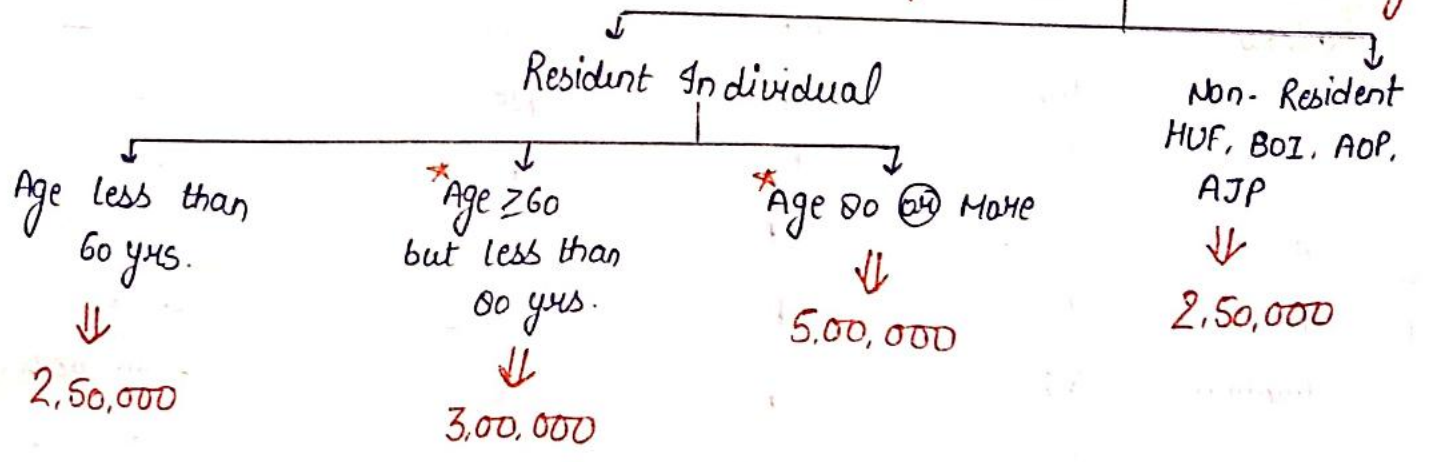 Resident Individual
Non-Resident
HUF, BOI, AOP,
AJP
2,50,000
Age less than
60 yrs.
2,50,000
*Age ≥60
but less than
80 yrs.
3,00,000
*Age 80 or More
5,00,000